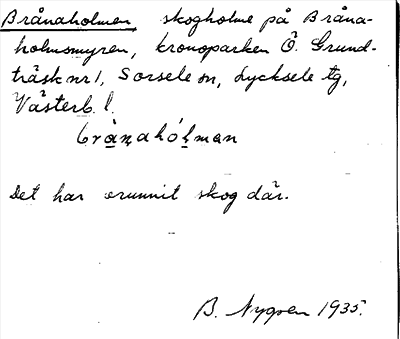 Brånaholmen skogholme på Bråna-
holmsmyren, kronoparken Ö. Grund-
träsk nr 1, Sorsele sn, Lycksele tg,
Västerb. l.
brånahólman
Det har brunnit skog där.
B. Nygren 1935.